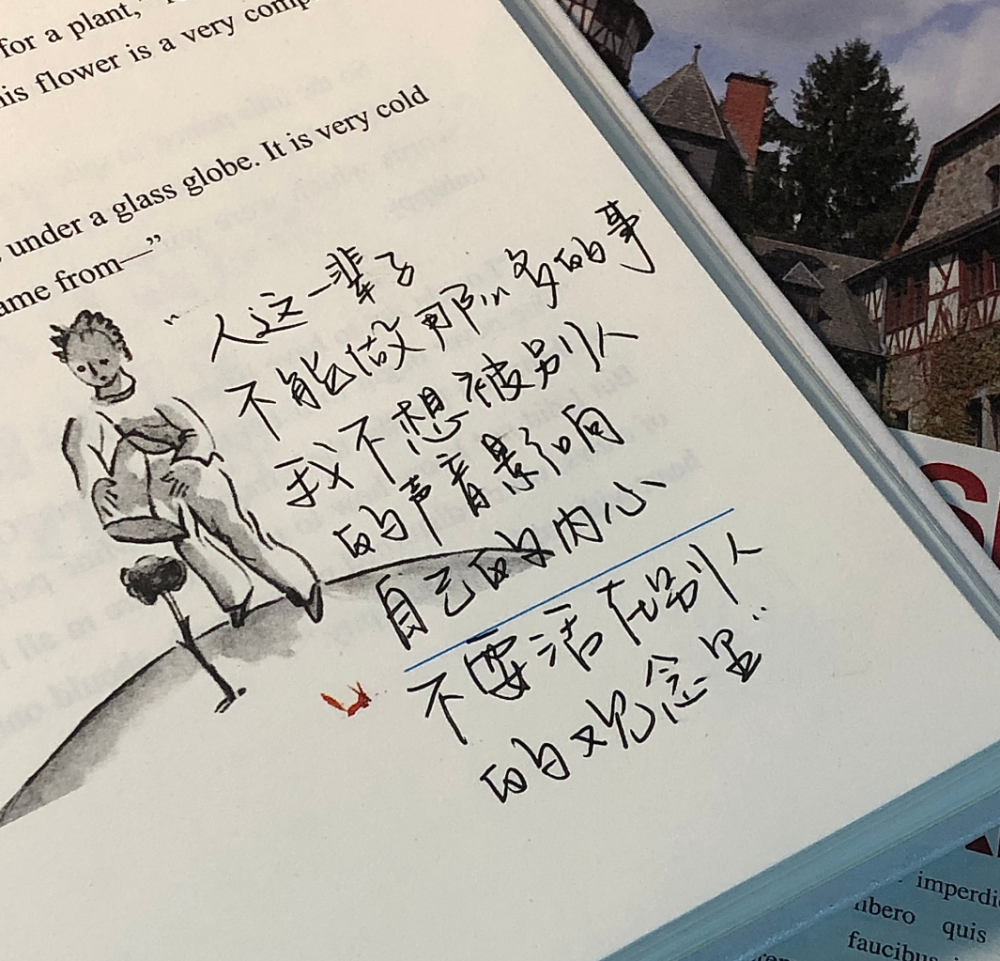 for a plant,"
his flower is a very comp
under a glass globe. It is very cold
ame from—"
"人这一辈子
不能做那么多的事
我不想被别人
的声音影响
自己的内心
不要活在别人
的观念里"
imperdie
libero quis
faucibus